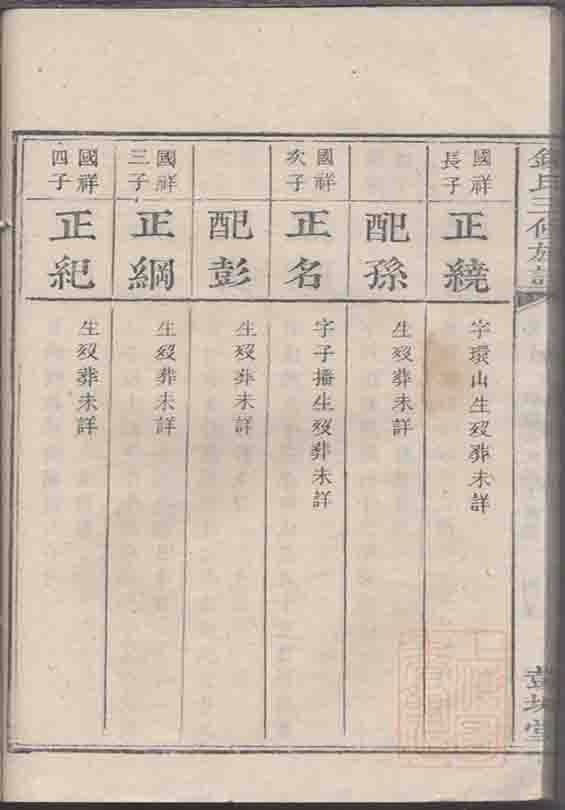 國祥長子
正繞
字環山生歿葬未詳
配孫
生歿葬未詳
國祥次子
正名
字子播生歿葬未詳
配彭
生歿葬未詳
國祥三子
正綱
生歿葬未詳
國祥四子
正紀
生歿葬未詳